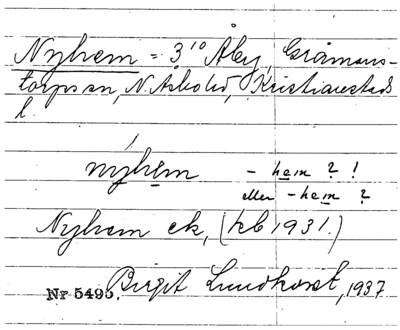 Nyhem = 3¹⁰ Åby, Gråmans-
torps sn, N. Åsbo hd, Kristianstads
l.
nýhem - hem ? !
eller - hem ?
Nyhem ek, (kb 1931.)
Nr 5495. Birgit Lundkvist, 1937